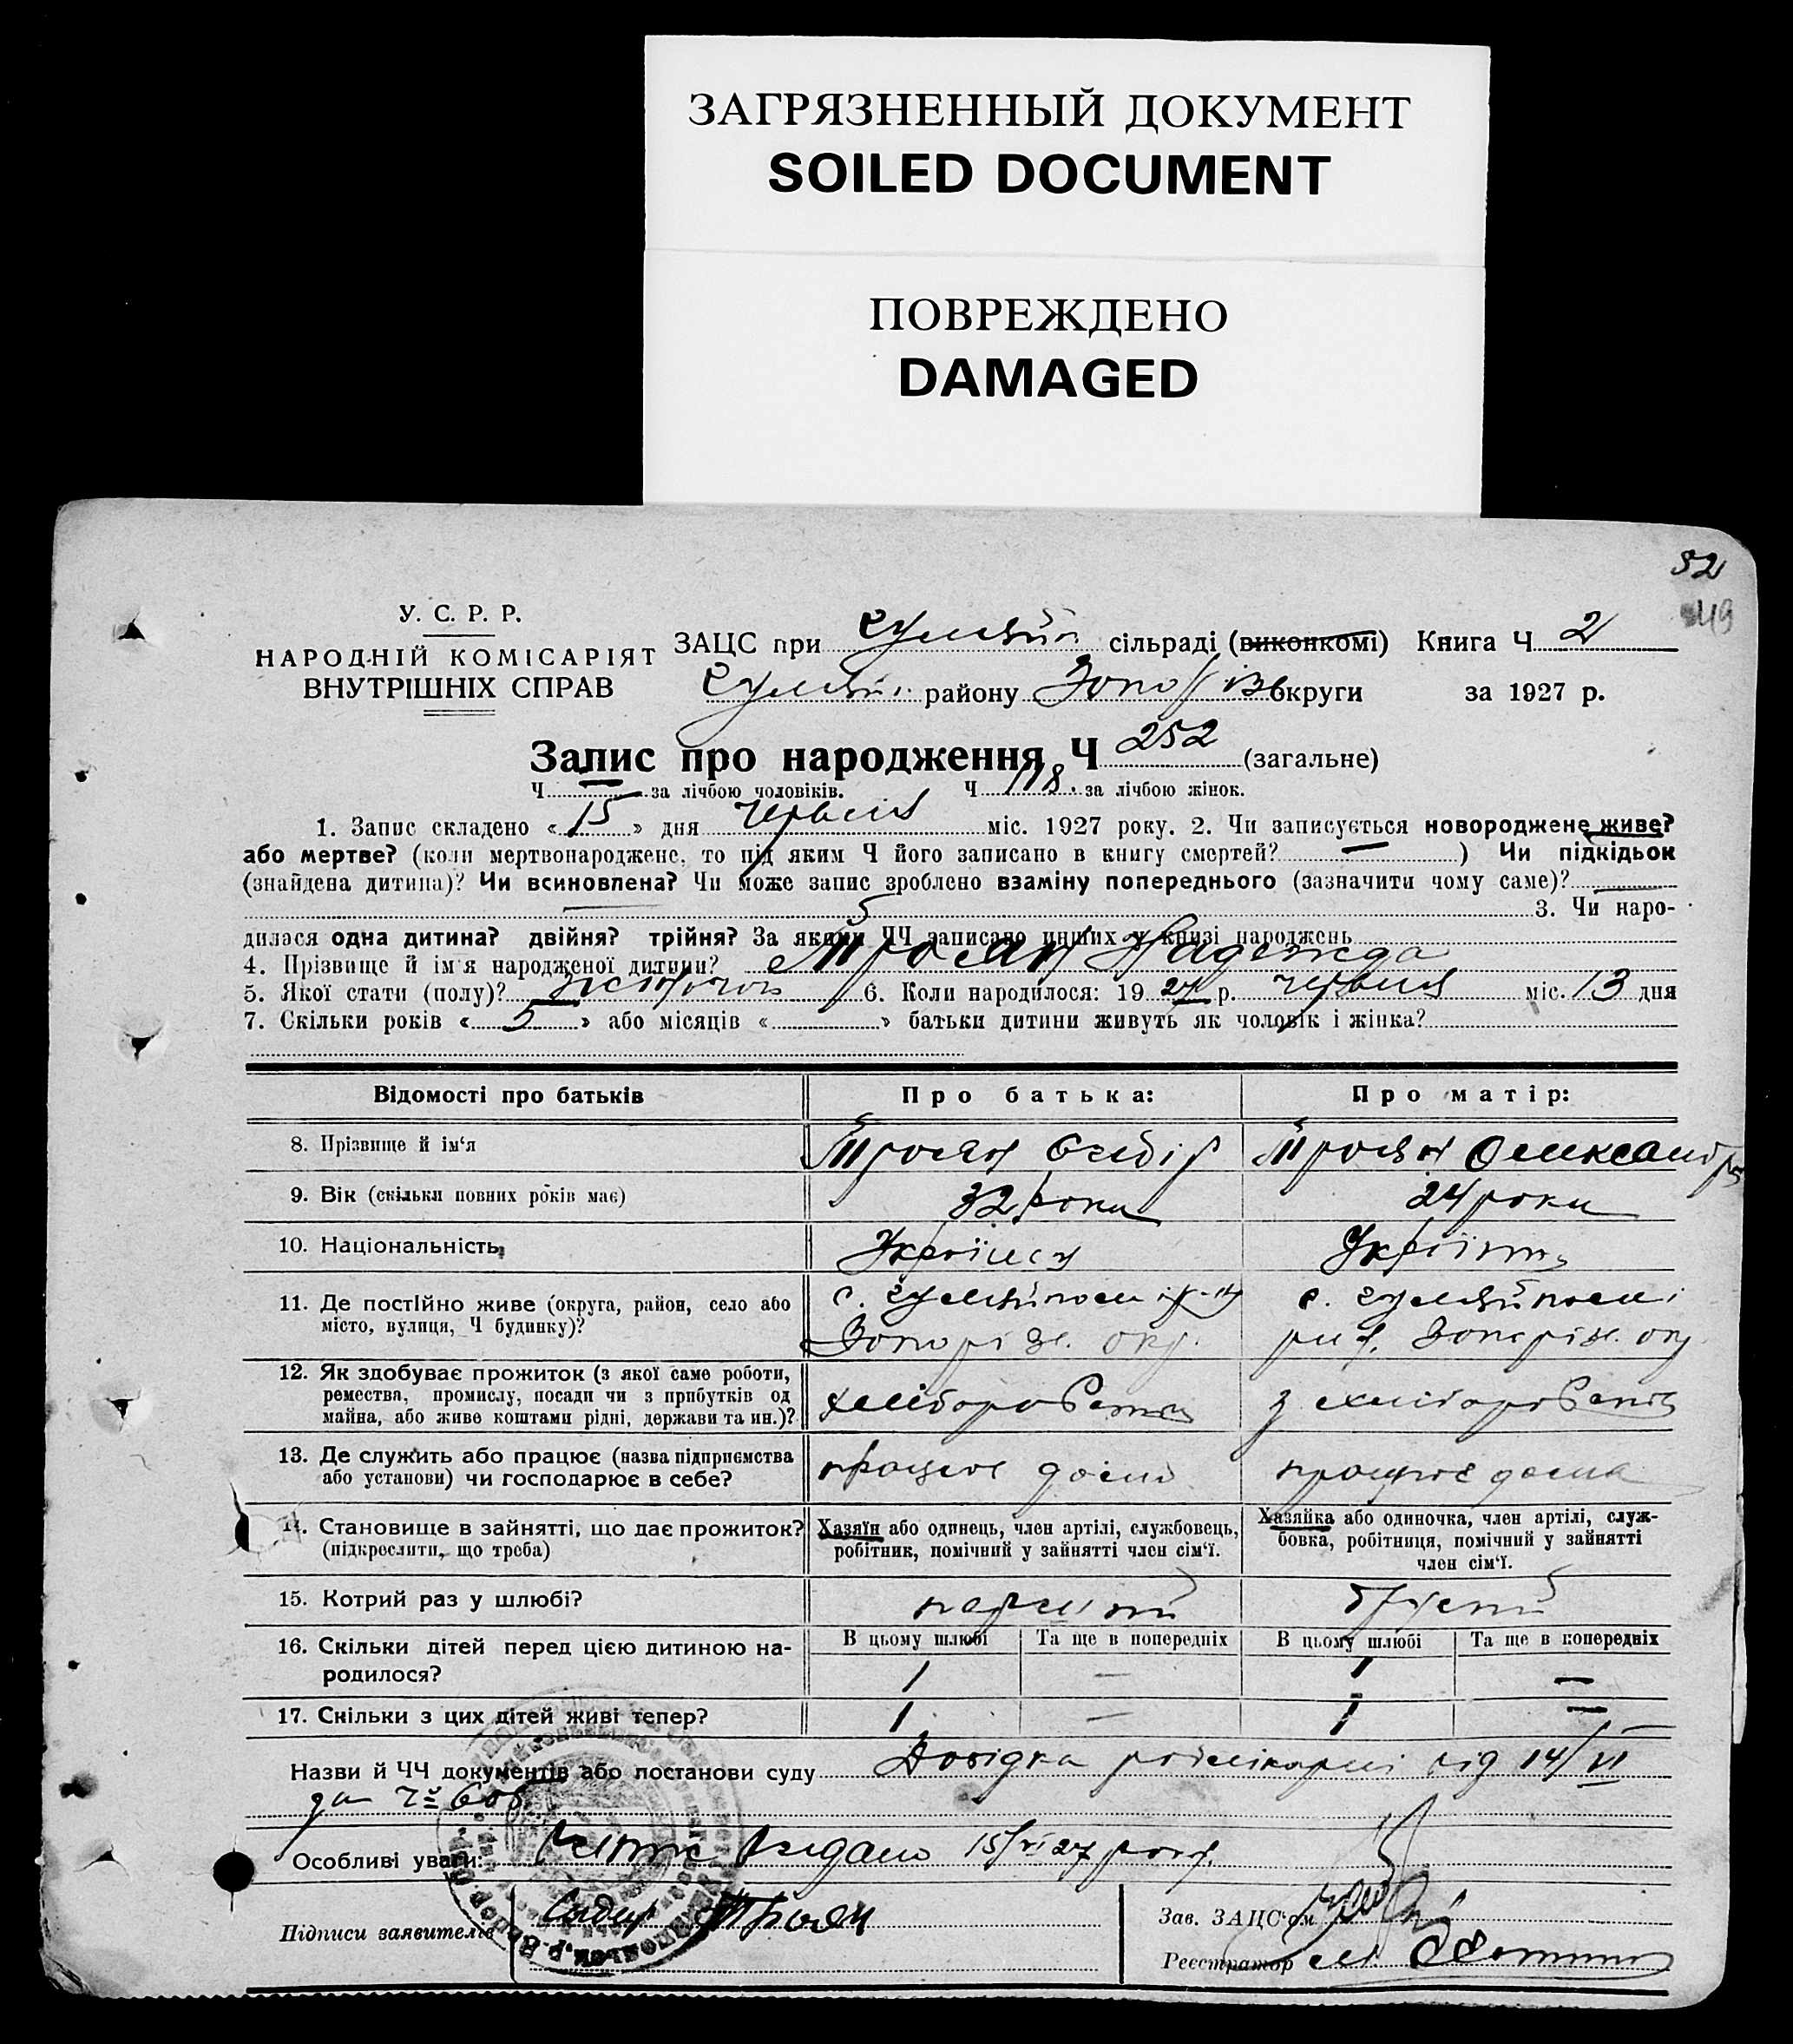 ЗАГРЯЗНЕННЫЙ ДОКУМЕНТ
SOILED DOCUMENT
ПОВРЕЖДЕНО
DAMAGED
32
49
У. С. Р. Р.
НАРОДНІЙ КОМІСАРІЯТ
ВНУТРІШНІХ СПРАВ
ЗАЦС при Гуляйп. сільраді (виконкомі) Книга Ч 2
Гуляйп. району Запоріз округи за 1927 р.
Запис про народження Ч 252 (загальне)
Ч — за лічбою чоловіків. Ч 118. за лічбою жінок.
1. Запис складено « 15 » дня червня міс. 1927 року. 2. Чи записується новороджене живе?
або мертве? (коли мертвонароджене, то під яким Ч його записано в книгу смертей? — ) Чи підкідьок
(знайдена дитина)? Чи всиновлена? Чи може запис зроблено взаміну попереднього (зазначити чому саме)? —
— 3. Чи наро-
дилася одна дитина? двійня? трійня? За якими ЧЧ записано инших у книзі народжень
4. Прізвище й ім'я народженої дитини? Троян Надежда
5. Якої стати (полу)? жіночої 6. Коли народилося: 19 27 р. червня міс. 13 дня
7. Скільки років « 5 » або місяців « » батьки дитини живуть як чоловік і жінка?
Відомості про батьків Про батька: Про матір:
8. Прізвище й ім'я Троян Сидір Троян Олександра
9. Вік (скільки повних років має) 32 роки 24 роки
10. Національність Українец Українка
11. Де постІйно живе (округа, район, село або с. Гуляйполе с. Гуляйполе
місто, вулиця, Ч будинку)? Запоріз. окр. рай. Запоріз. окр
12. Як здобуває прожиток (з якої саме роботи,
ремества, промислу, посади чи з прибутків од хлібороб з хлібороб
майна, або живе коштами рідні, держави та ин.)?
13. Де служить або працює (назва підприємства працює дома працює дома
або установи) чи господарює в себе?
14. Становище в зайнятті, що дає прожиток? Хазяїн або одинець, член артілі, службовець, Хазяйка або одиночка, член артілі, служ-
(підкреслити, що треба) робітник, помічний у зайнятті член сім'ї. бовка, робітниця, помічний у зайнятті
член сім'ї.
15. Котрий раз у шлюбі? перший
16. Скільки дітей перед цією дитиною на- В цьому шлюбі Та ще в попередніх В цьому шлюбі Та ще в попередніх
родилося? 1 — 1 —
17. Скільки з цих дітей живі тепер? 1 — 1 —
Назви й ЧЧ документів або постанови суду Довідка від 14/VI
за
Особливі уваги: видано 15/VI 27 року.
Підписи заявителів Сидир Троян Зав. ЗАЦС'ом
Реєстратор